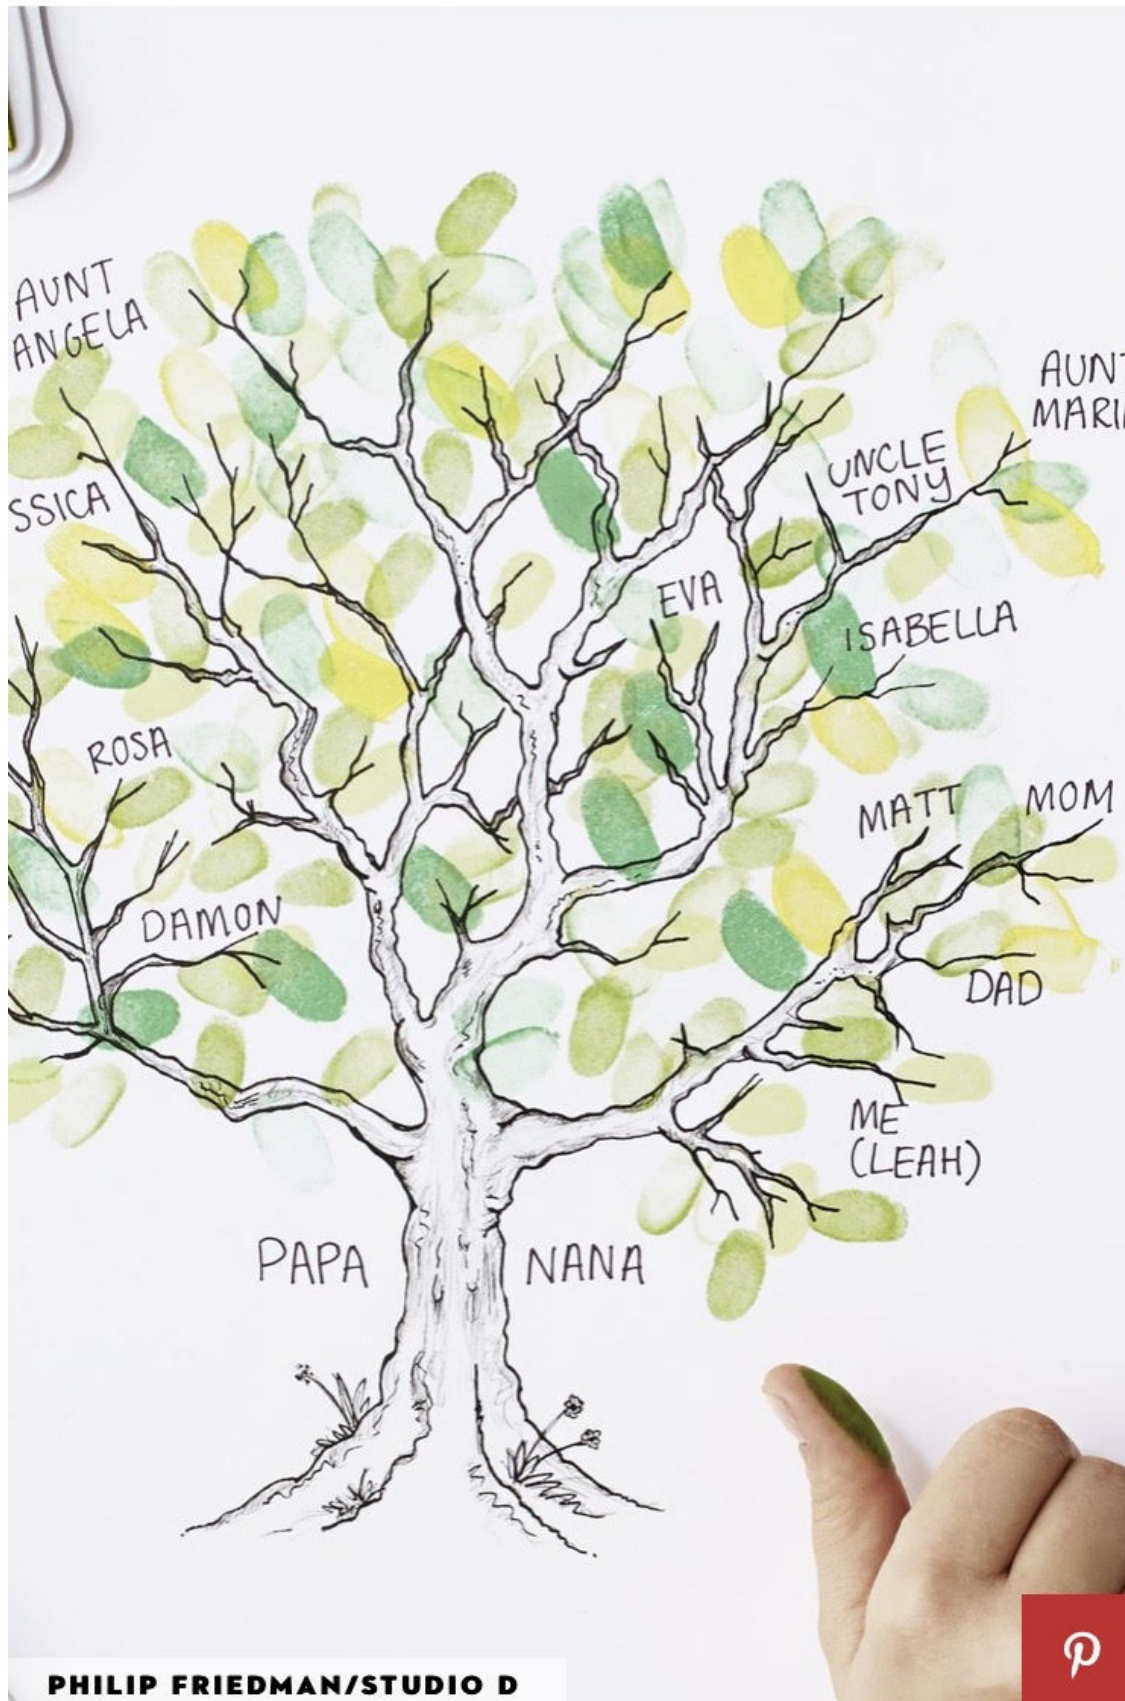 AUNT
ANGELA
AUNT
MARI
UNCLE
TONY
SSICA
EVA
ISABELLA
ROSA
MATT
MOM
DAMON
DAD
ME
(LEAH)
PAPA
NANA
PHILIP FRIEDMAN/STUDIO D